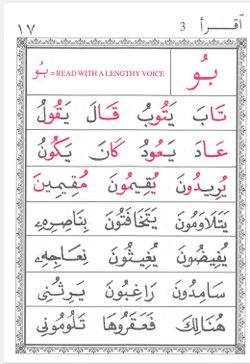 ١٧ 3 اقرأ
بُو = READ WITH A LENGTHY VOICE بُو
تَابَ يَتُوبُ قَالَ يَقُولُ
عَادَ يَعُودُ كَانَ يَكُونُ
يُرِيدُونَ يُقِيمُونَ مُقِيمِينَ
يَتَلَاوَمُونَ يَتَخَافَتُونَ بِنَاصِرِهِ
يُفِيضُونَ يُغِيثُونَ نِعَاجِهِ
سَامِدُونَ رَاغِبُونَ يَرِثُنِى
هُنَالِكَ فَعَقَرُوهَا تَلُومُونِى